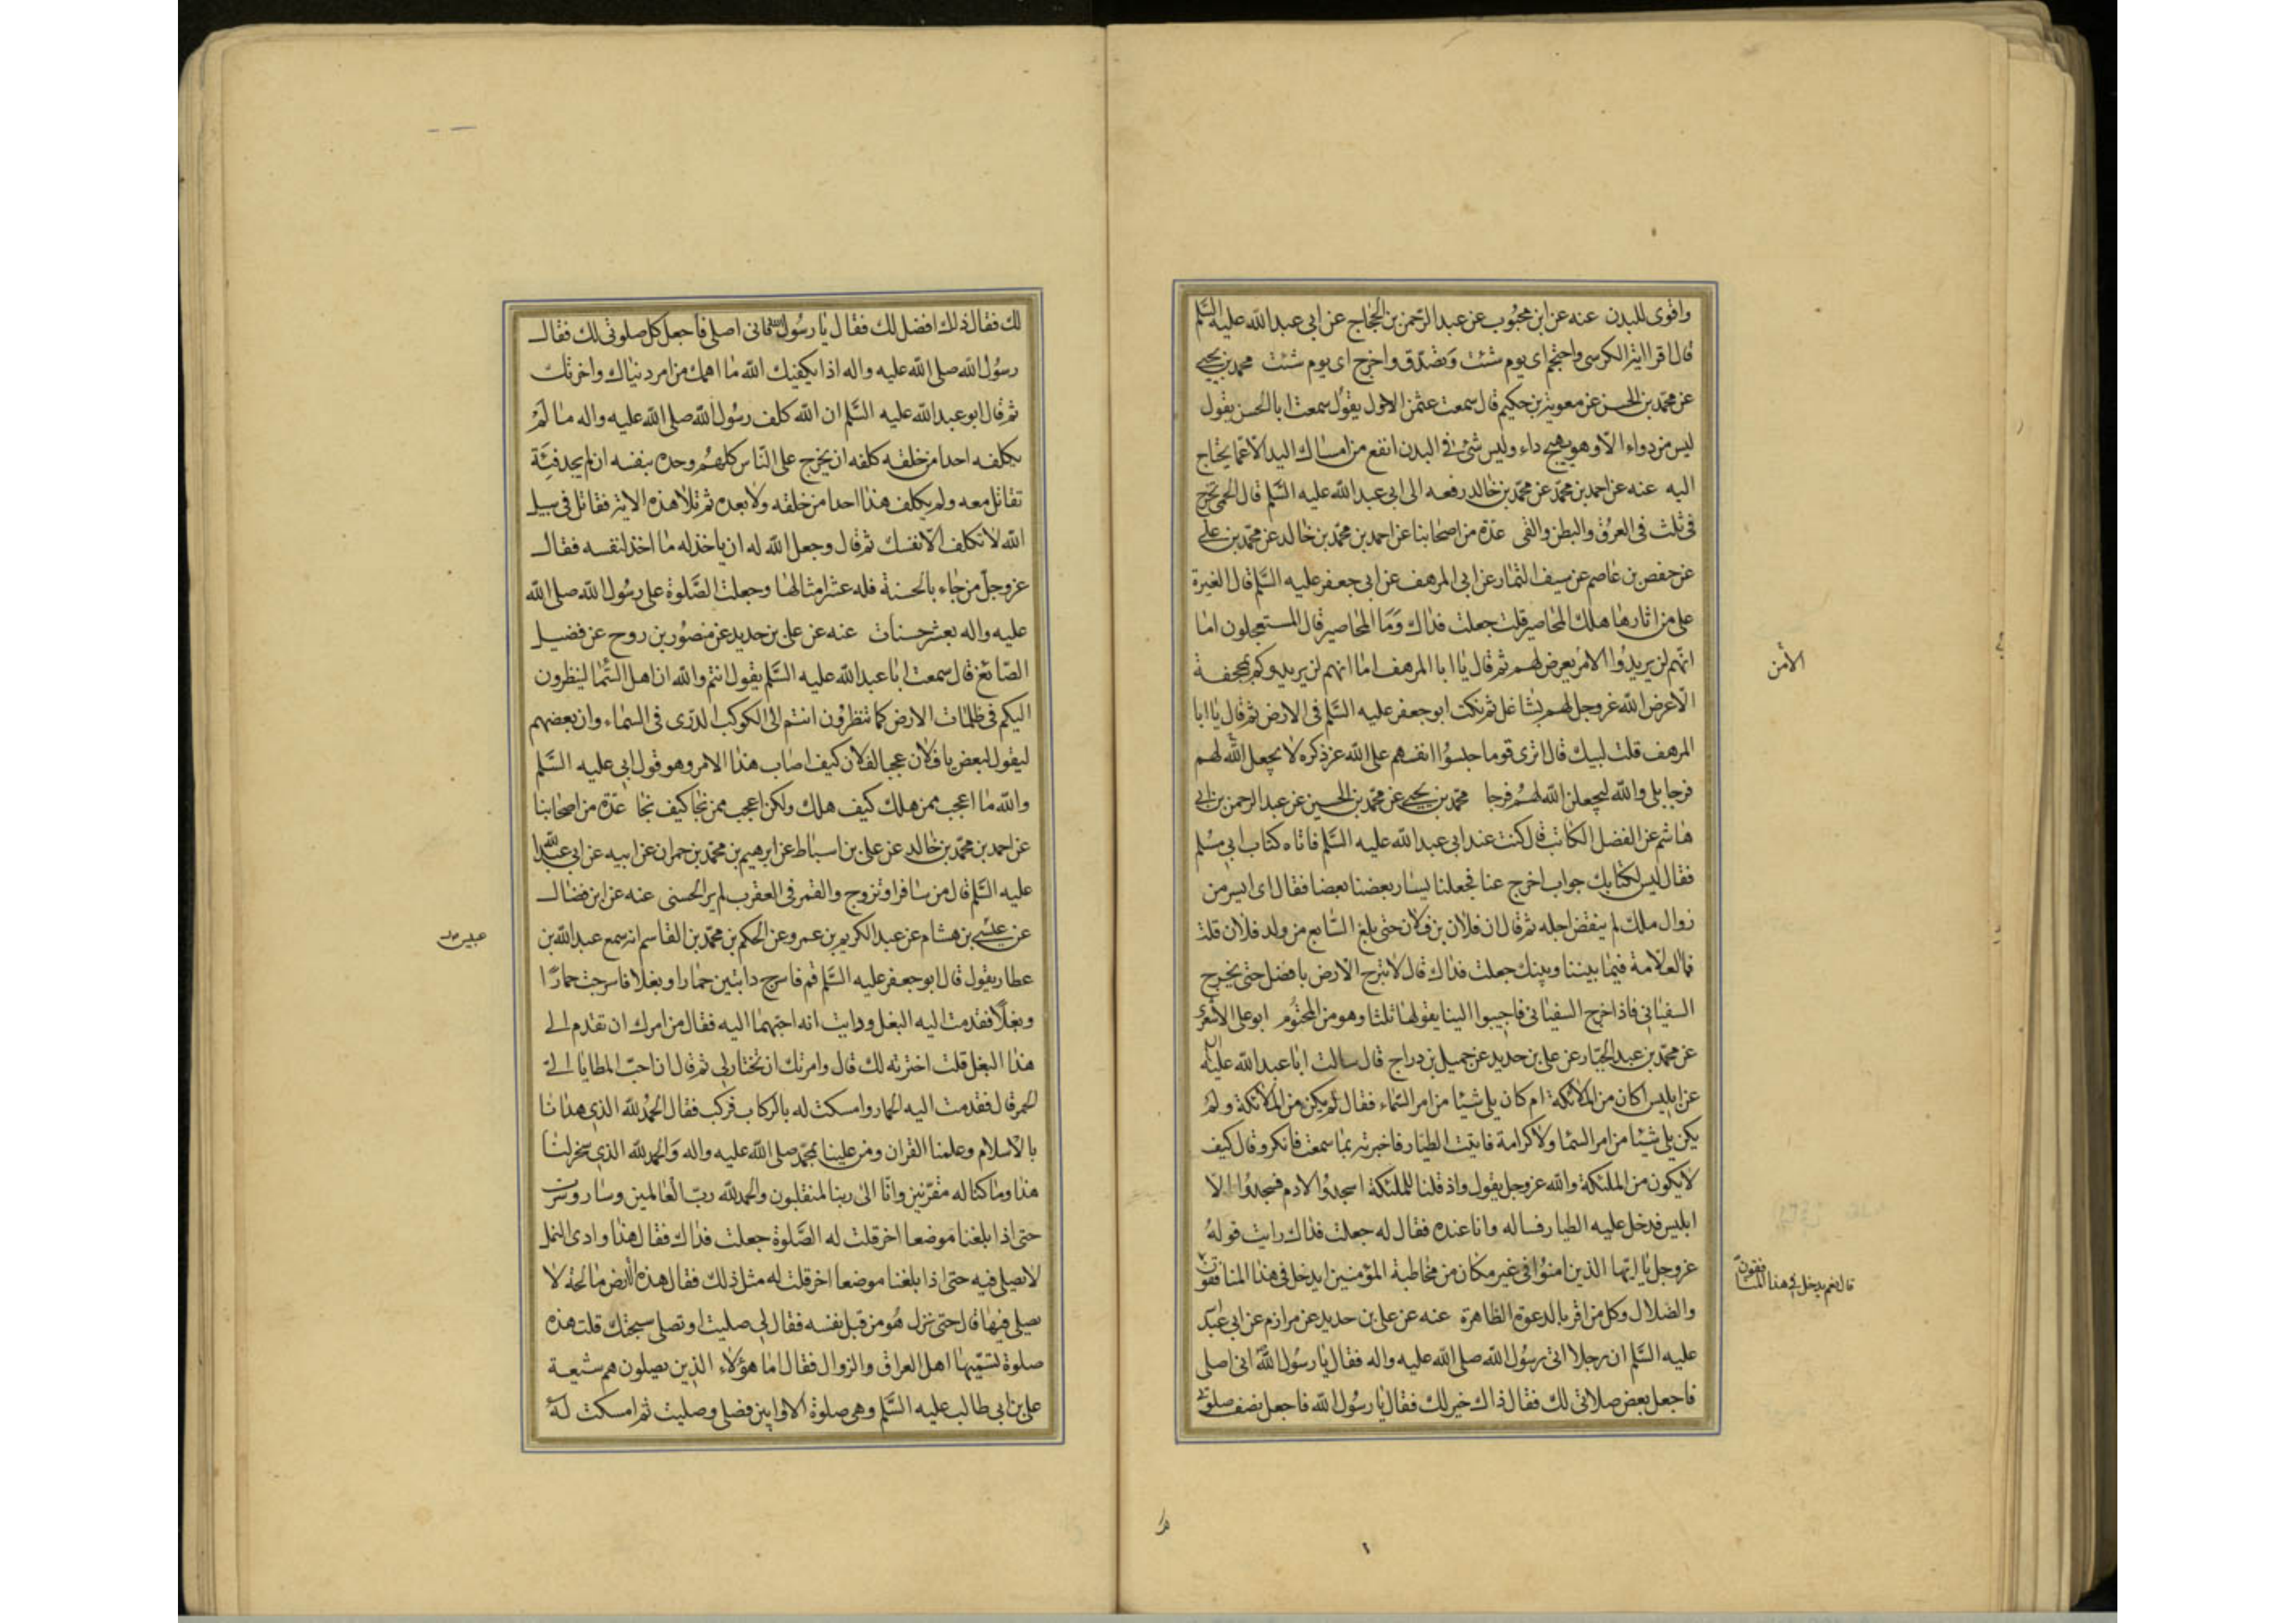 واقوى للبدن عنه عن ابن محبوب عن عبد الرحمن بن الحجاج عن ابى عبد الله عليه السلم
قال اقرا اية الكرسى واحتجم اى يوم شئت وتصدق واخرج اى يوم شئت محمد بن يحيى
عن محمد بن الحسن عن معوية بن حكيم قال سمعت عثمن الاحول يقول سمعت ابا الحسن يقول
ليس من دواء الا وهو يهيج داء وليس شئ فى البدن انفع من امساك اليد الا عما يحتاج
اليه عنه عن احمد بن محمد عن محمد بن خالد رفعه الى ابى عبد الله عليه السلم قال الحمى تخرج
فى ثلث فى العرق والبطن والقى عدة من اصحابنا عن احمد بن محمد بن خالد عن محمد بن على
عن حفص بن عاصم عن سيف التمار عن ابى المرهف عن ابى جعفر عليه السلم قال الغبرة
على من اثارها هلك المحاصير قلت جعلت فداك وما المحاصير قال المستعجلون اما
انهم لن يريدوا الامر يعرض لهم ثم قال يا ابا المرهف اما انهم لن يريدوكم بمجحفة
الا عرض الله عز وجل لهم بشاغل ثم نكت ابو جعفر عليه السلم فى الارض ثم قال يا ابا
المرهف قلت لبيك قال اترى قوما حبسوا انفسهم على الله عز ذكره لا يجعل الله لهم
فرجا بلى والله ليجعلن الله لهم فرجا محمد بن يحيى عن محمد بن الحسين عن عبد الرحمن بن ابى
هاشم عن الفضل الكاتب قال كنت عند ابى عبد الله عليه السلم فاتاه كتاب ابى مسلم
فقال ليس لكتابك جواب اخرج عنا فجعلنا يسار بعضنا بعضا فقال اى ايسر من
زوال ملك لم ينقض اجله ثم قال ان فلان بن فلان حتى بلغ السابع من ولد فلان قلت
فما العلامة فيما بيننا وبينك جعلت فداك قال لا تبرح الارض با فضل حتى يخرج
السفيانى فاذا خرج السفيانى فاجيبوا الينا يقولها ثلثا وهو من المحتوم ابو على الاشعرى
عن محمد بن عبد الجبار عن على بن حديد عن جميل بن دراج قال سالت ابا عبد الله عليه
عن ابليس اكان من الملائكة ام كان يلى شيئا من امر السماء فقال لم يكن من الملائكة ولم
يكن يلى شيئا من امر السما ولا كرامة فاتيت الطيار فاخبرته بما سمعت فانكر وقال كيف
لا يكون من الملئكة والله عز وجل يقول واذ قلنا للملئكة اسجدوا لادم فسجدوا الا
ابليس فدخل عليه الطيار فساله وانا عنده فقال له جعلت فداك رايت قوله
عز وجل يا ايها الذين امنوا فى غير مكان من مخاطبة المؤمنين ايدخل فى هذا المنافقون
والضلال وكل من اقر بالدعوة الظاهرة عنه عن على بن حديد عن مرازم عن ابى عبد
عليه السلم ان رجلا اتى رسول الله صلى الله عليه واله فقال يا رسول الله انى اصلى
فاجعل بعض صلاتى لك فقال ذاك خير لك فقال يا رسول الله فاجعل نصف صلوتى
الامن
قال نعم يدخل فى هذا المنافقون
لك فقال ذلك افضل لك فقال يا رسول الله فانى اصلى فاجعل كل صلوتى لك فقال
رسول الله صلى الله عليه واله اذا يكفيك الله ما اهمك من امر دنياك واخرتك
ثم قال ابو عبد الله عليه السلم ان الله كلف رسول الله صلى الله عليه واله ما لم
يكلفه احدا من خلقه كلفه ان يخرج على الناس كلهم وحده بنفسه ان لم يجد فئة
تقاتل معه ولم يكلف هذا احدا من خلقه ولا بعده ثم تلا هذه الاية فقاتل فى سبيل
الله لا تكلف الا نفسك ثم قال وجعل الله له ان ياخذ له ما اخذ لنفسه فقال
عز وجل من جاء بالحسنة فله عشر امثالها وجعلت الصلوة على رسول الله صلى الله
عليه واله بعشر حسنات عنه عن على بن حديد عن منصور بن روح عن فضيل
الصائغ قال سمعت ابا عبد الله عليه السلم يقول انتم والله ان اهل السما لينظرون
اليكم فى ظلمات الارض كما تنظرون انتم الى الكوكب الدرى فى السماء وان بعضهم
ليقول لبعض يا فلان عجبا لفلان كيف اصاب هذا الامر وهو قول ابى عليه السلم
والله ما اعجب ممن هلك كيف هلك ولكن اعجب ممن نجا كيف نجا عدة من اصحابنا
عن احمد بن محمد بن خالد عن على بن اسباط عن ابرهيم بن محمد بن حمران عن ابيه عن ابى عبد الله
عليه السلم قال من سافر او تزوج والقمر فى العقرب لم ير الحسنى عنه عن ابن فضال
عن عبيس بن هشام عن عبد الكريم بن عمرو عن الحكم بن محمد بن القاسم انه سمع عبد الله بن
عطا ريقول قال ابو جعفر عليه السلم قم فاسرج دابتين حمارا وبغلا فاسرجت حمارا
وبغلا فقدمت اليه البغل ورايت انه احبهما اليه فقال من امرك ان تقدم الى
هذا البغل قلت اخترته لك قال وامرتك ان تختار لى ثم قال ان احب المطايا الى
الحمر قال فقدمت اليه الحمار وامسكت له بالركاب فركب فقال الحمد لله الذى هدانا
بالاسلام وعلمنا القران ومن علينا بمحمد صلى الله عليه واله والحمد لله الذى سخر لنا
هذا وما كنا له مقرنين وانا الى ربنا لمنقلبون والحمد لله رب العالمين وسار وسرت
حتى اذا بلغنا موضعا اخر قلت له الصلوة جعلت فداك فقال هذا وادى النمل
لا يصلى فيه حتى اذا بلغنا موضعا اخر قلت له مثل ذلك فقال هذه الارض مالحة لا
يصلى فيها قال حتى نزل هو من قبل نفسه فقال لى صليت او تصلى سبحتك قلت هذه
صلوة تسميها اهل العراق والزوال فقال اما هؤلاء الذين يصلون هم شيعة
على بن ابى طالب عليه السلم وهى صلوة الاوابين فصلى وصليت ثم امسكت له